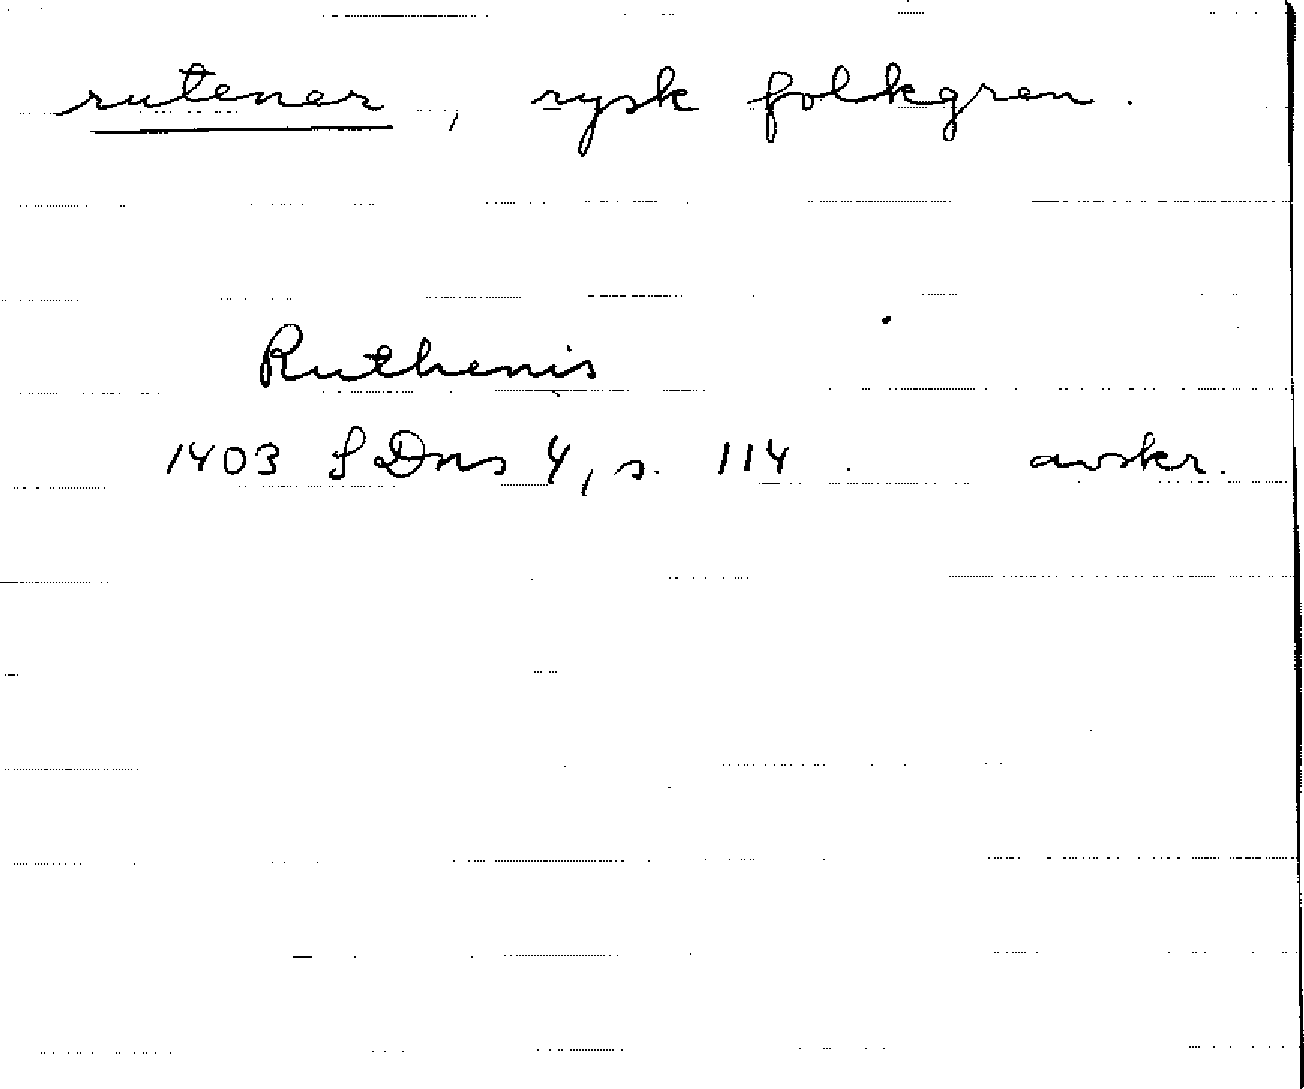 rutener, rysk folkgren.
Ruthenis
1403 SDns 4, s. 114. avskr.